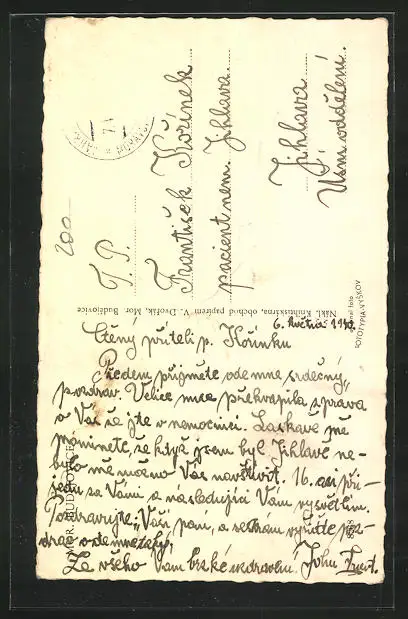 200—
T. P.
František Kořínek
pacient nem. Jihlava
Jihlava
Ušní oddělení.
Nákl. Knihtiskárna, obchod papírem V. Dvořák, Mor. Budějovice
FOTOTYPIA-VYŠKOV
6. května 19
Ctěný příteli p. Kořínku
Předem přijměte odemne srdečný
pozdrav. Velice mne překvapila zpráva
o Vás že jte v nemocnici. Laskavě mě
prominete, že když jsem byl Jihlavě ne-
bylo mě možno Vás navštívit. 16. při-
jedu za Vámi a následující Vám vysvětlím.
Pozdravujte Vaši paní, a sestrám vyřiďte poz-
drav odemne taky,
Za všeho Vám brzké uzdravení. John